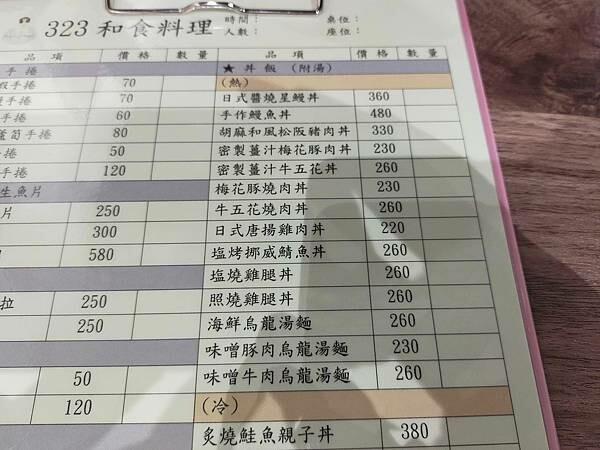 323和食料理
時間：
人數：
桌位：
座位：
品 項 價 格 數 量
手捲
手捲 70
手捲 70
手捲 60
蘆筍手捲 80
手捲 50
手捲 120
生魚片
片 250
300
580
拉 250
250
50
120
品 項 價 格 數 量
★ 丼 飯 (附湯)
(熱)
日式醬燒星鰻丼 360
手作鰻魚丼 480
胡麻和風松阪豬肉丼 330
密製薑汁梅花豚肉丼 230
密製薑汁牛五花丼 260
梅花豚燒肉丼 230
牛五花燒肉丼 260
日式唐揚雞肉丼 220
塩烤挪威鯖魚丼 260
塩燒雞腿丼 260
照燒雞腿丼 260
海鮮烏龍湯麵 260
味噌豚肉烏龍湯麵 230
味噌牛肉烏龍湯麵 260
(冷)
炙燒鮭魚親子丼 380